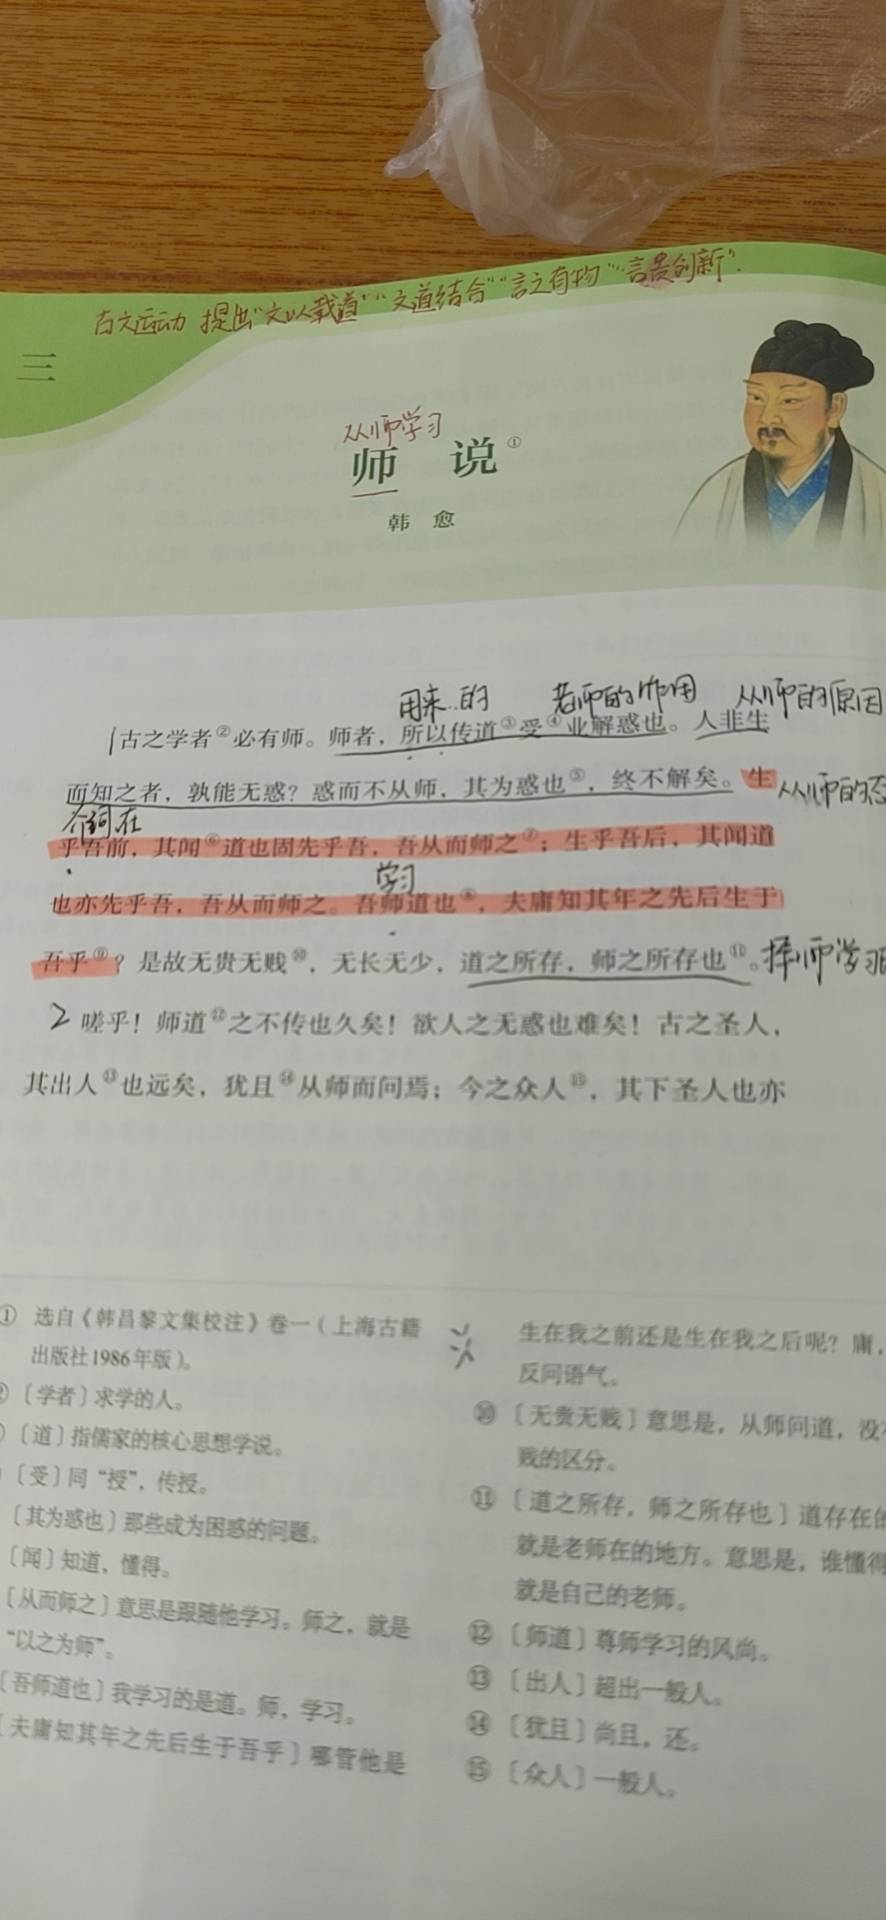 古文运动 提出"文以载道""文道结合""言之有物""言贵创新".
三
从师学习
师 说①
韩 愈
用来..的 老师的作用 从师的原因
1古之学者②必有师。师者，所以传道③受④业解惑也。人非生
而知之者，孰能无惑？惑而不从师，其为惑也⑤，终不解矣。生 从师的态
介词在
乎吾前，其闻⑥道也固先乎吾，吾从而师之⑦；生乎吾后，其闻道
学习
也亦先乎吾，吾从而师之。吾师道也⑧，夫庸知其年之先后生于
吾乎⑨？是故无贵无贱⑩，无长无少，道之所存，师之所存也⑪。择师学习
2 嗟乎！师道⑫之不传也久矣！欲人之无惑也难矣！古之圣人，
其出人⑬也远矣，犹且⑭从师而问焉；今之众人⑮，其下圣人也亦
① 选自《韩昌黎文集校注》卷一（上海古籍
出版社1986年版）。
②〔学者〕求学的人。
〔道〕指儒家的核心思想学说。
〔受〕同“授”，传授。
〔其为惑也〕那些成为困惑的问题。
〔闻〕知道，懂得。
〔从而师之〕意思是跟随他学习。师之，就是
“以之为师”。
〔吾师道也〕我学习的是道。师，学习。
〔夫庸知其年之先后生于吾乎〕哪管他是
生在我之前还是生在我之后呢？庸，
反问语气。
⑩〔无贵无贱〕意思是，从师问道，没
贱的区分。
⑪〔道之所存，师之所存也〕道存在的
就是老师在的地方。意思是，谁懂得
就是自己的老师。
⑫〔师道〕尊师学习的风尚。
⑬〔出人〕超出一般人。
⑭〔犹且〕尚且，还。
⑮〔众人〕一般人。